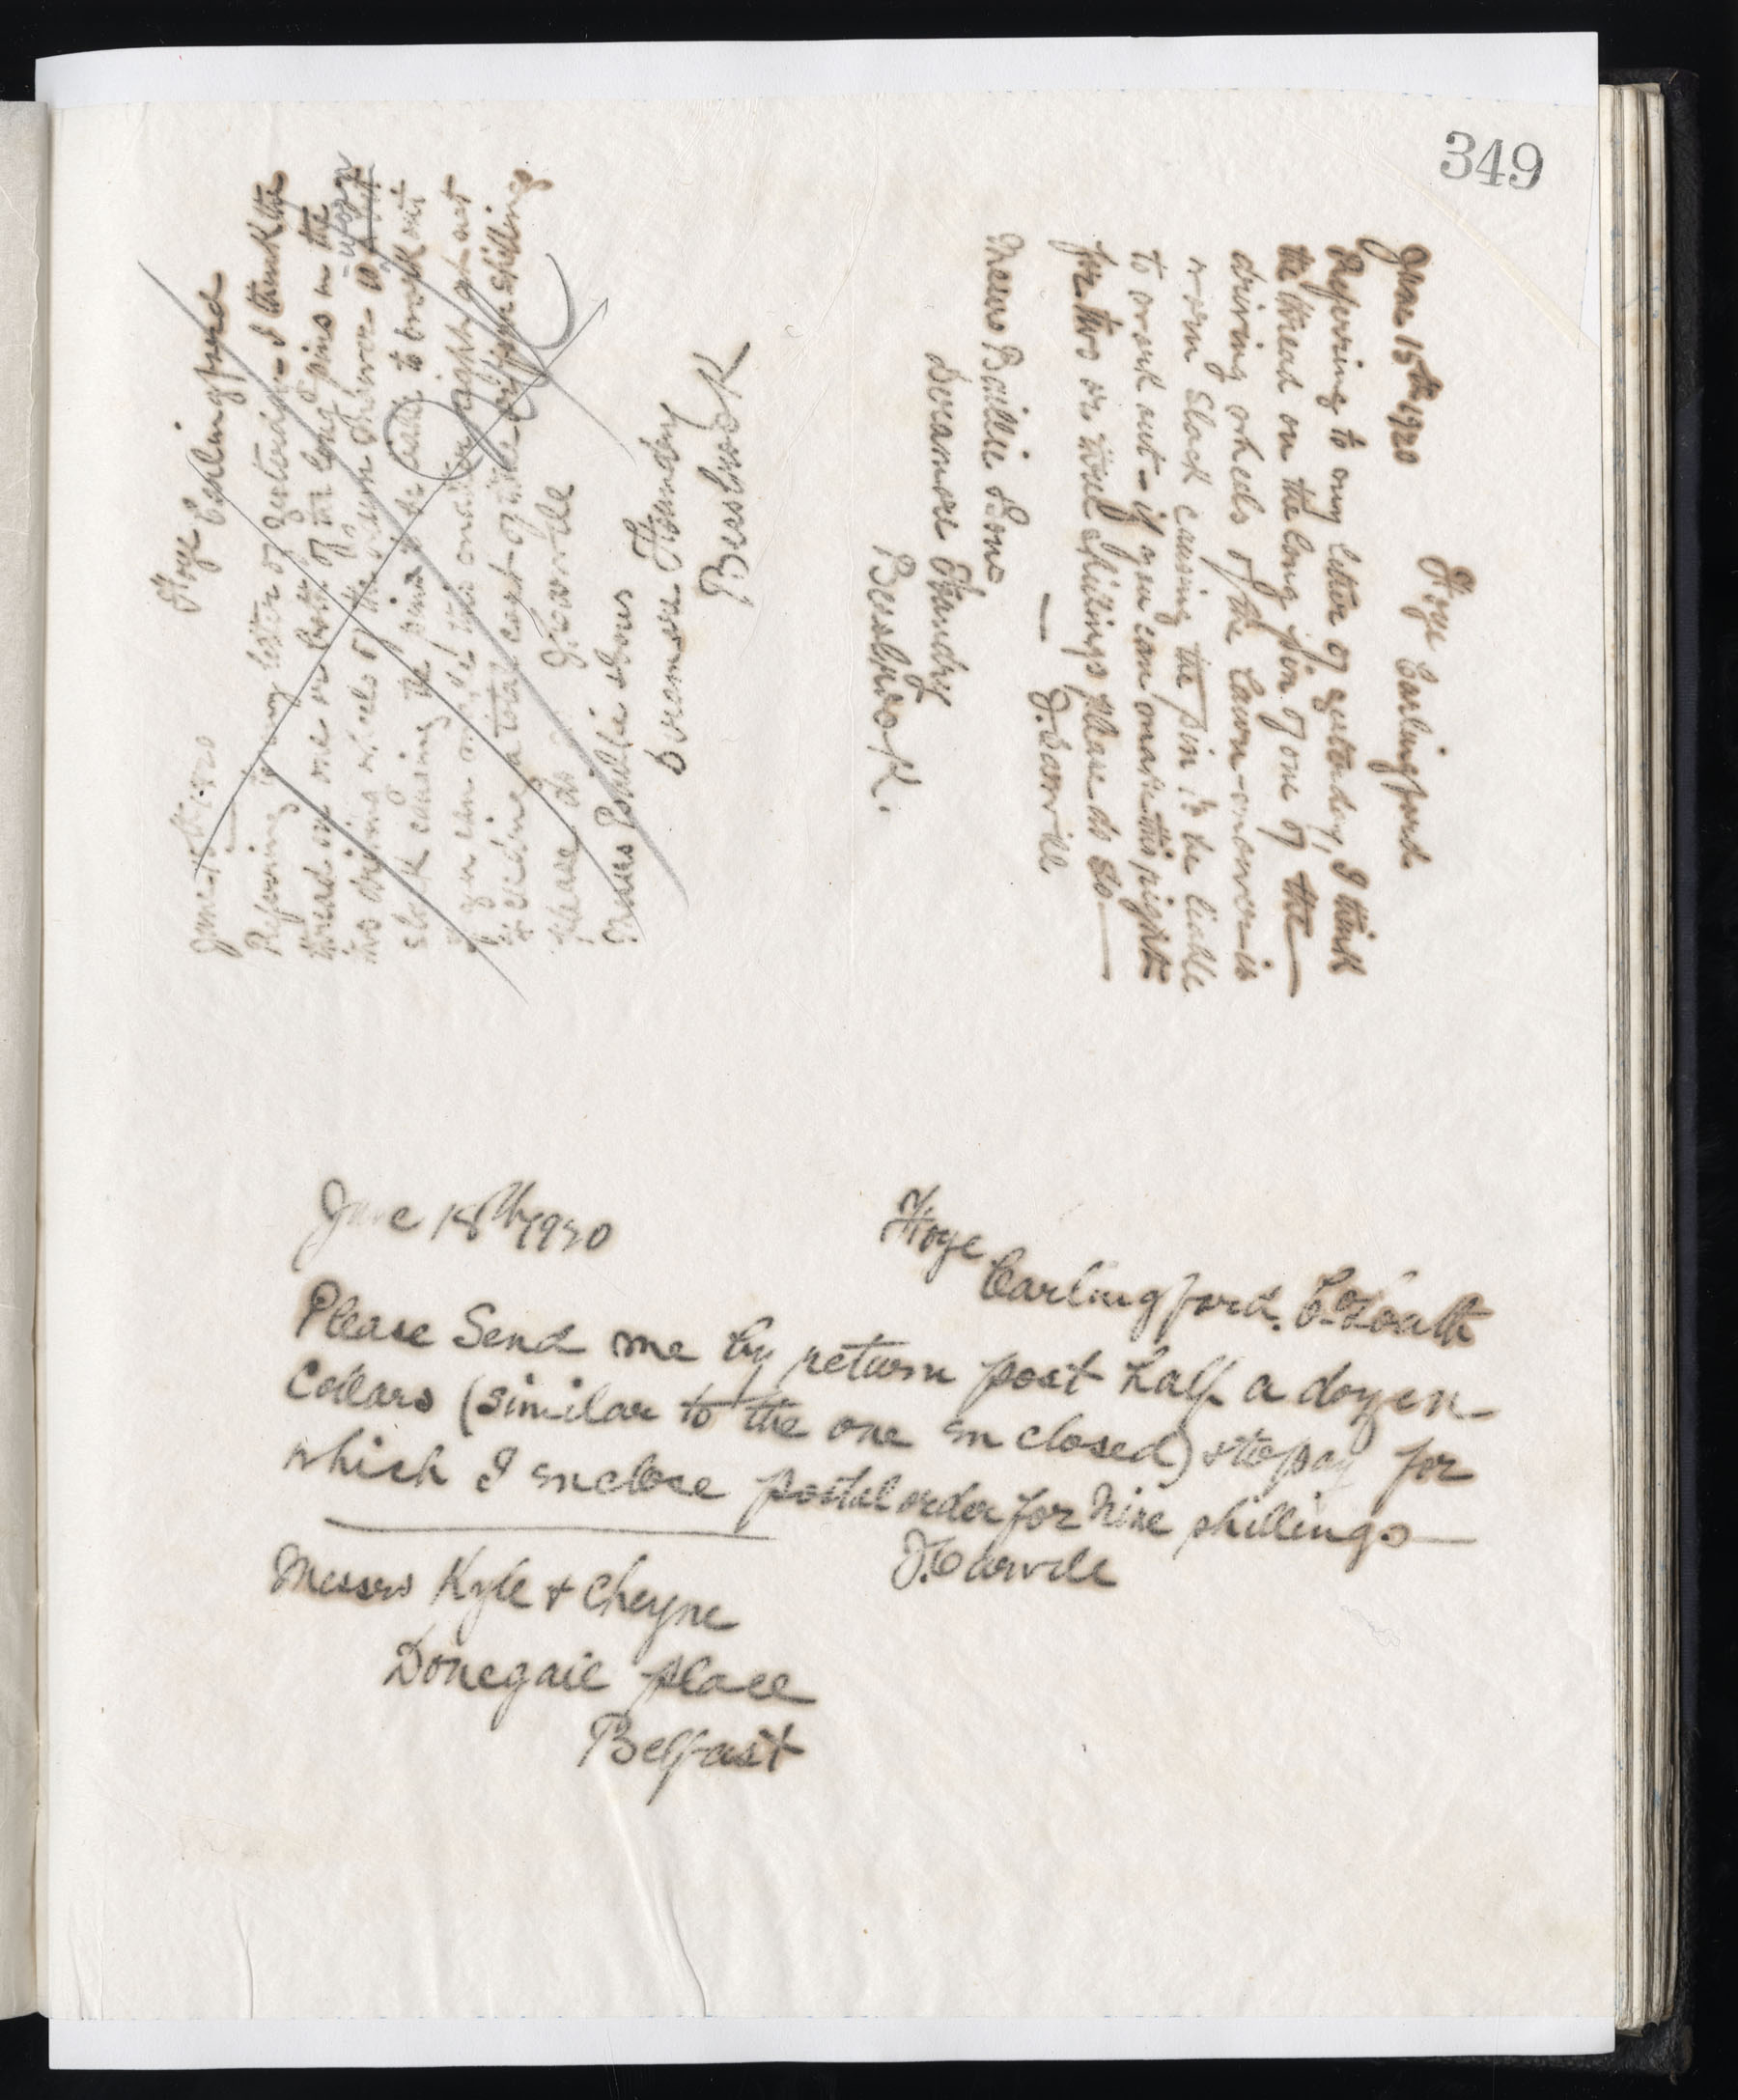 349
June 15th 1920
Foye Carlingford
Referring to my letter of yesterday - I think the
thread on one or both of the long pins in the
two driving wheels of the lawn Mower is worn
slack causing the pins to be liable to break out
if you can make this right at not
exceeding a total cost of fifteen shillings
please do so J. Carvill
Messrs Baillie & Sons
Divernagh Foundry
Bessbrook
June 15th 1920
Foye Carlingford
Referring to my letter of yesterday, I think
the thread on the long pin of one of the
driving wheels of the Lawn-mower is
worn slack causing the pin to be liable
to work out - if you can make this right
for two or three shillings please do so
J. Carvill
Messrs Baillie & Sons
Foundry
Bessbrook.
June 18th 1920
Foye
Carlingford. Co. Louth
Please Send me by return post half a dozen
Collars (similar to the one enclosed) & to pay for
which I enclose postal order for Nine shillings
J. Carvill
Messrs Kyle & Cheyne
Donegall place
Belfast